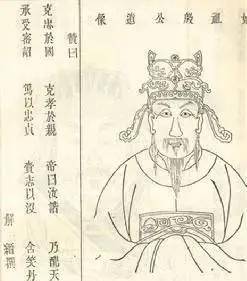 祖殷公遺像
贊曰
克忠於國 克孝於親 帝曰汝諧 乃酬天
承受密詔 篤以忠貞 賫志以沒 含笑丹
解縉撰